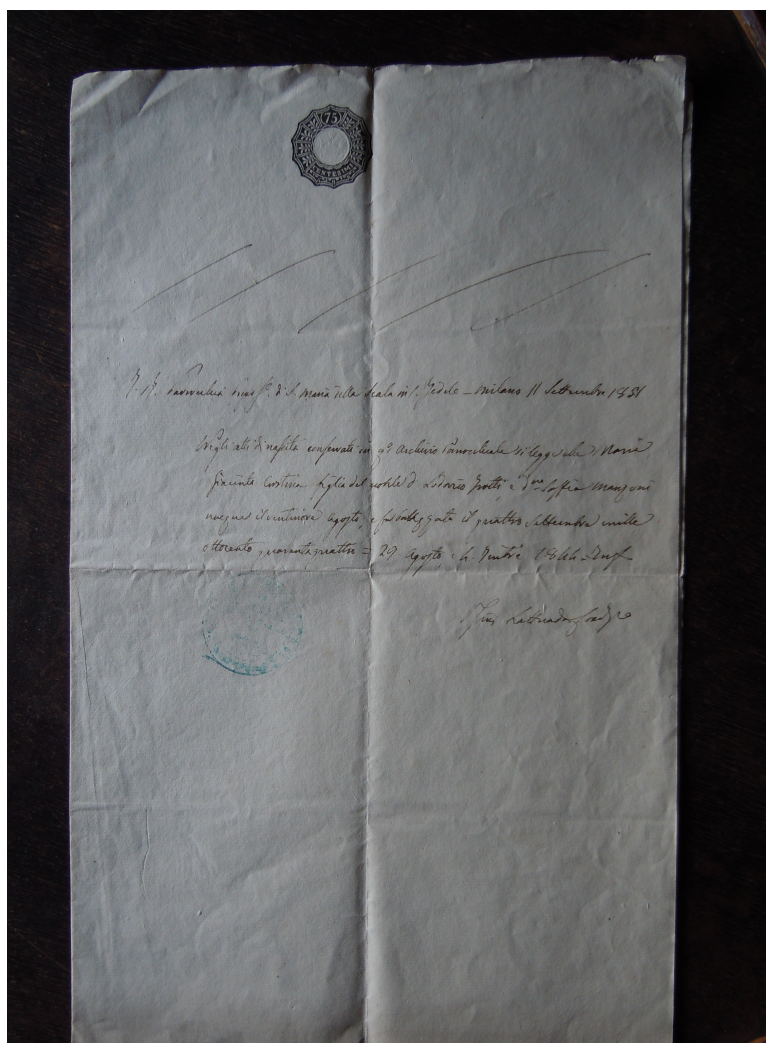 75
CENTESIMI
I. R. Parrocchia di S. Maria della Scala in S. Fedele - Milano 11 Settembre 1851
Negli atti di nascita conservati in q.º Archivio Parrocchiale si legge che Maria
Giacinta Cristina figlia del nobile d. Lodovico Trotti, e d.na Sofia Manzoni
nacque il ventinove Agosto, e fu battezzata il quattro Settembre mille
ottocento quarantaquattro = 29 Agosto, 4 1844